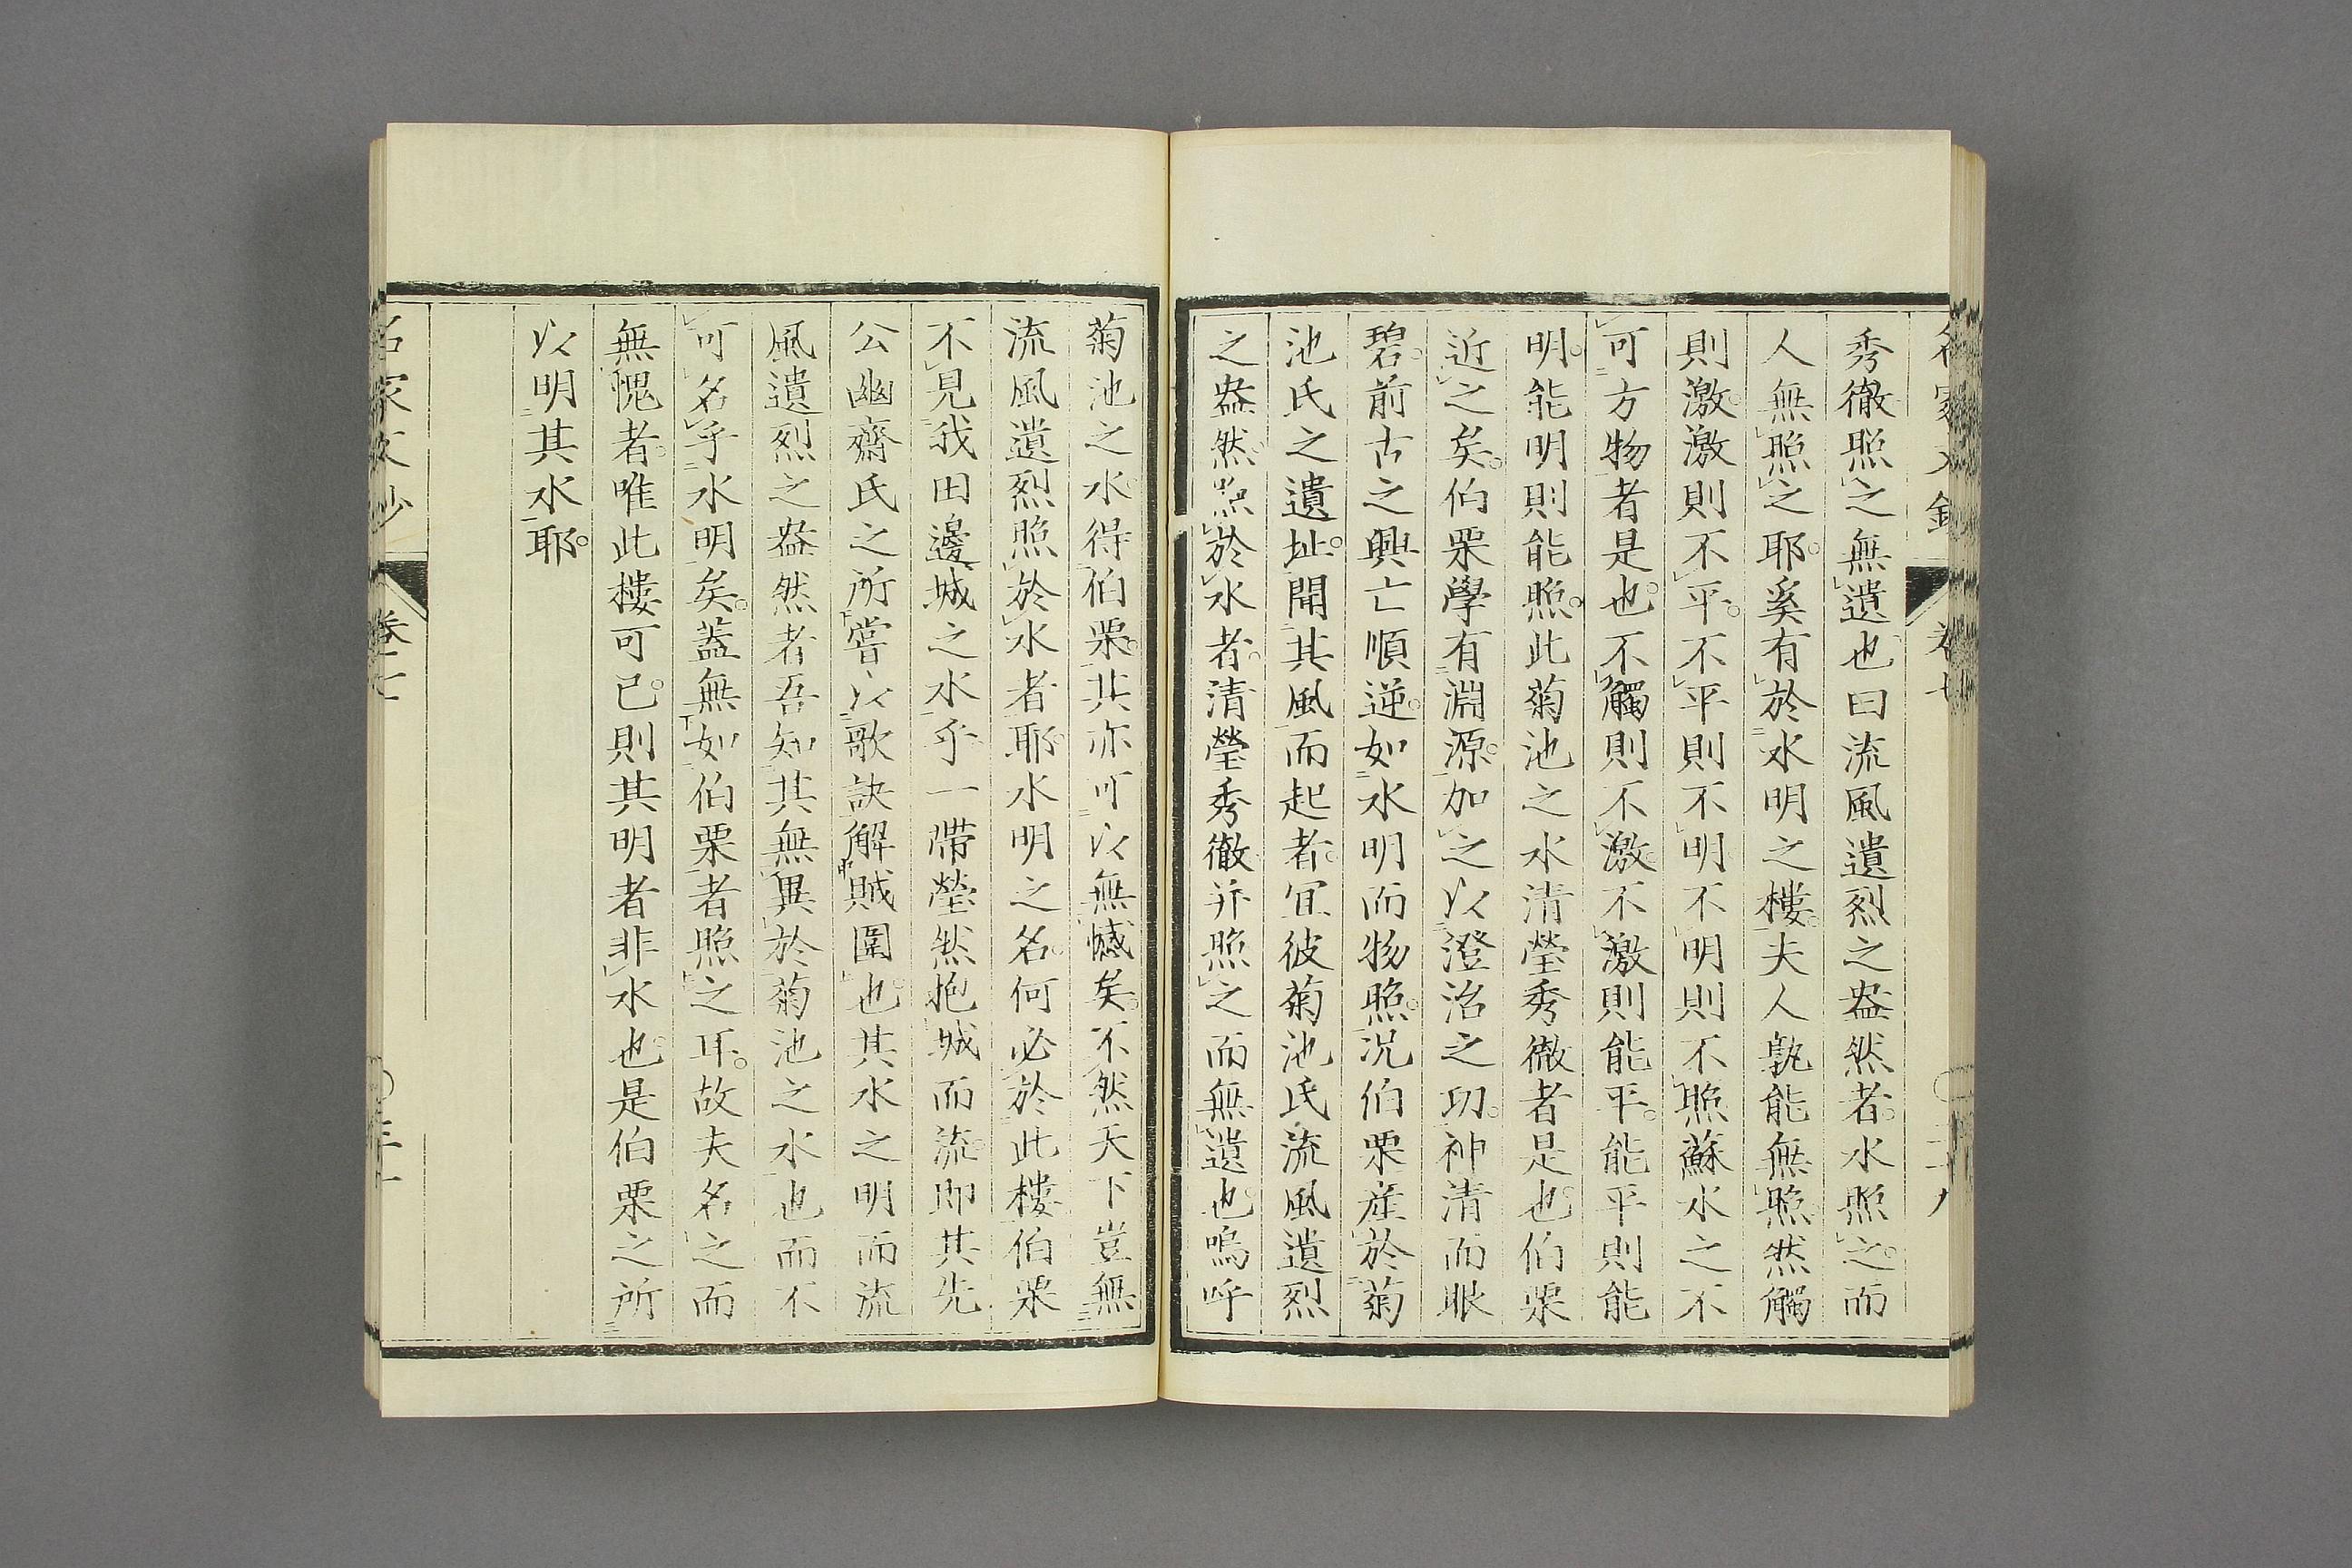 秀徹照之無遺也曰流風遺烈之盎然者水照之而
人無照之耶奚有於水明之樓夫人孰能無照然觸
則激激則不平不平則不明不明則不照蘇水之不
可方物者是也不觸則不激不激則能平能平則能
明能明則能照此菊池之水清瑩秀徹者是也伯栗
近之矣伯栗學有淵源加之以澄治之功神清而眼
碧前古之興亡順逆如水明而物照况伯栗産於菊
池氏之遺址聞其風而起者宜彼菊池氏流風遺烈
之盎然照於水者清瑩秀徹并照之而無遺也嗚呼
菊池之水得伯栗其亦可以無憾矣不然天下豈無
流風遺烈照於水者耶水明之名何必於此樓伯栗
不見我田邊城之水乎一帶瑩然抱城而流即其先
公幽齋氏之所嘗以歌訣解賊圍也其水之明而流
風遺烈之盎然者吾知其無異於菊池之水也而不
可名乎水明矣蓋無如伯栗者照之耳故夫名之而
無愧者唯此樓可已則其明者非水也是伯栗之所
以明其水耶
名家文鈔 卷七